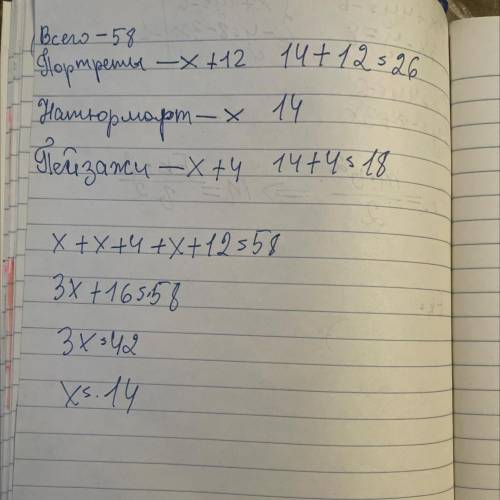 Всего – 58
Портреты – x + 12 14 + 12 = 26
Натюрморт – x 14
Пейзажи – x + 4 14 + 4 = 18
x + x + 4 + x + 12 = 58
3x + 16 = 58
3x = 42
x = 14